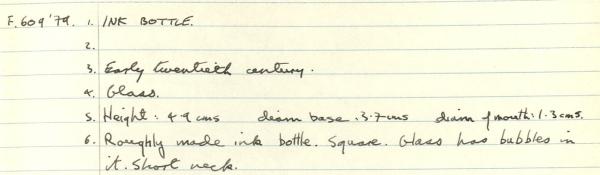 F.609'79. 1. INK BOTTLE.
2.
3. Early twentieth century.
4. Glass.
5. Height: 4.9 cms diam base: 3.7 cms diam of mouth: 1.3 cms.
6. Roughly made ink bottle. Square. Glass has bubbles in
it. Short neck.